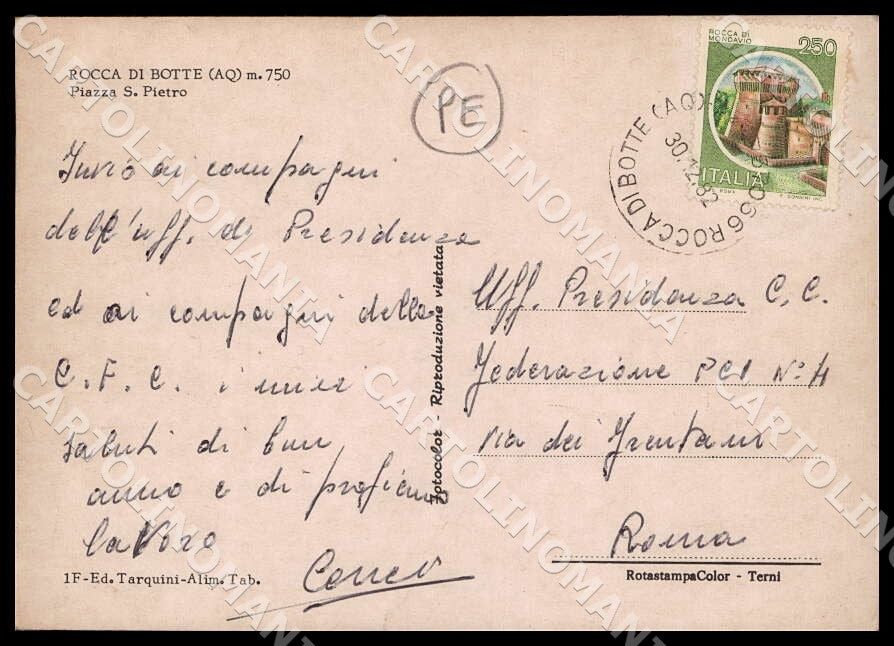 ROCCA DI BOTTE (AQ) m. 750
Piazza S. Pietro
PE
ROCCA DI
MONDAVIO
250
ITALIA
ROMA
ROCCA DI BOTTE (AQ)
30.12.82
Invio ai compagni
dell'uff. di Presidenza
ed ai compagni della
C. F. C. i miei
saluti di buon
anno e di proficuo
lavoro
Uff. Presidenza C. C.
Federazione PCI N° 4
Via dei Frentani
Roma
Fotocolor - Riproduzione vietata
1F-Ed. Tarquini-Alim. Tab.
RotastampaColor - Terni
CARTOLINOMANIA